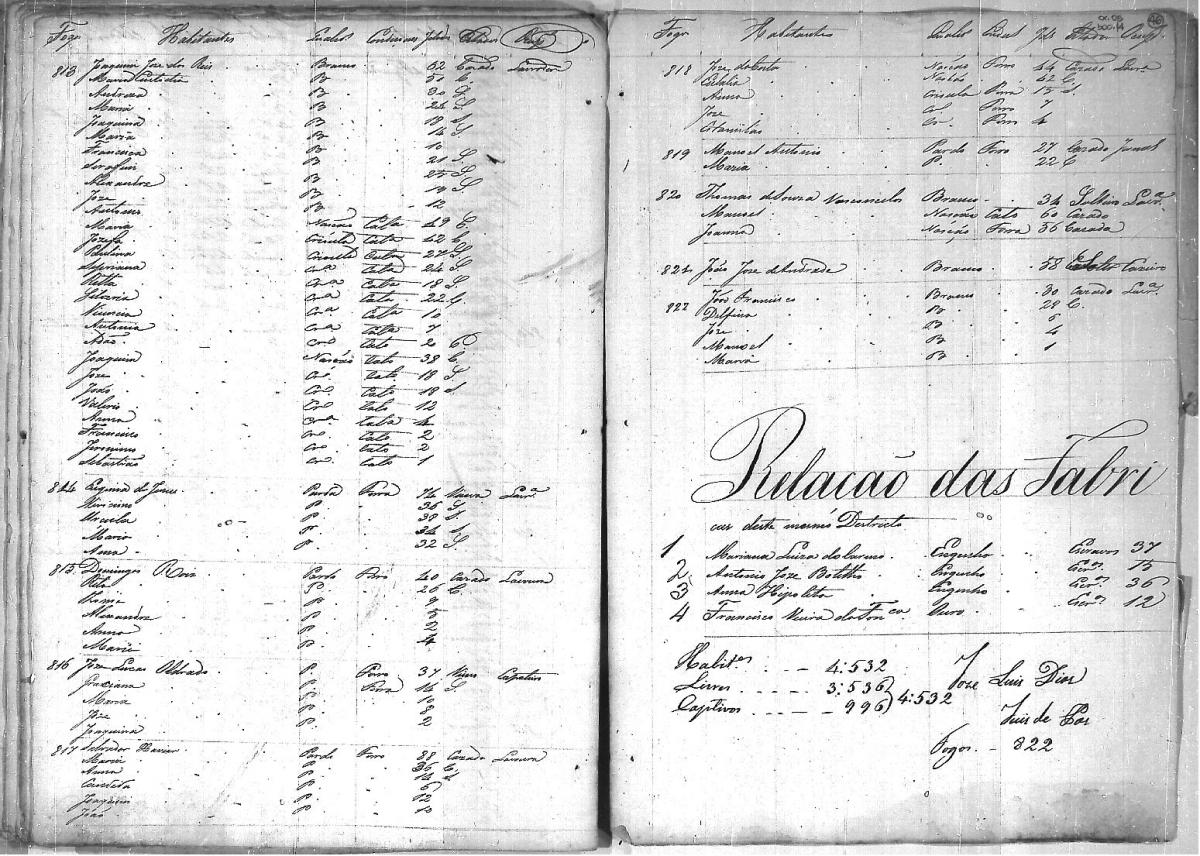 Fogo Habitantes Qualid. Condiçoens Idades Estados Occup.
813 Joaquim Joze dos Reis Branco 52 Cazado Lavoura
Maria Custodia B. 50 C.
Andreza B. 30 S.
Maria B. 24 S.
Joaquina B. 18 S.
Maria B. 14 S.
Francisca B. 10
Serafim B. 21 S.
Alexandre B. 25 S.
Joze B. 19 S.
Antonio B. 12
Maria Nasção Cata 49 C.
Jozefa Crioula Cata 42 C.
Paulina Crioula Cata 27 S.
Severiana Cra. Cata 24 S.
Ritta Cra. Cata 18 S.
Hilaria Cra. Cata 22 C.
Vicencia Cra. Cata 10
Antonia Cra. Cata 7
Adão Cro. Cato 20 C.
Joaquim Nasção Cato 38 C.
Joze Cro. Cato 18 S.
João Cro. Cato 18 S.
Valerio Cro. Cato 12
Anna Cra. Cata 4
Francisco Cro. Cato 2
Jeronimo Cro. Cato 2
Sebastião Cro. Cato 1
814 de Jesus Parda Forra 74 Viuva Lavra.
P. 36 S.
Urcula P. 38 S.
Maria P. 34 S.
Anna P. 32 S.
815 Domingos Roiz Pardo Forro 40 Cazado Lavoura
Rita P. 26 C.
P. 9
Alexandre P. 5
Anna P. 2
Maria P. 4
816 Joze Lucas P. Forro 37 Viuvo Capateiro
Graciana P. Forra 14 S.
Maria P. 10
Joze P. 8
Joaquina P. 2
817 Salvador Pardo Forro 38 Cazado Lavoura
Maria P. 36 C.
Anna P. 14 S.
Candida P. 6
Joaquim P. 12
João P. 10
or. 03 doc. 14 46
Fogo Habitantes Qualid. Condi. Ids. Estado Occup.
818 Joze da Costa Nasção Forro 44 Cazado Lavra.
Eulalia Nasção 42 C.
Anna Crioula Forra 15 S.
Joze Cro. Forro 7
Estanislao Cro. Forro 4
819 Manoel Antonio Pardo Forro 27 Cazado Jornal
Maria P. 22 C
820 Thomas de Souza Vasconcelos Branco 34 Solteiro Lavra.
Manoel Nasção Cato 60 Cazado
Joanna Nasção Forra 56 Cazada
821 João Joze de Andrade Branco 58
822 João Francisco Branco 30 Cazado Lavra.
Delfina B. 29 C.
Joze B. 6
Manoel B. 4
Maria B. 1
Relacão das Fabri
cas deste mesmo Destricto
1 Mariana Luiza do Carmo Engenho Escravos 37
2 Antonio Joze Botelho Engenho Escros. 15
3 Anna Hipolita Engenho Escros. 36
4 Francisco Vieira da Fonca. Ouro Escros. 12
Habites. 4:532
Livres 3:536
Captivos 996 4:532
Joze Luis Dias
Juis de Paz
Fogos. 822